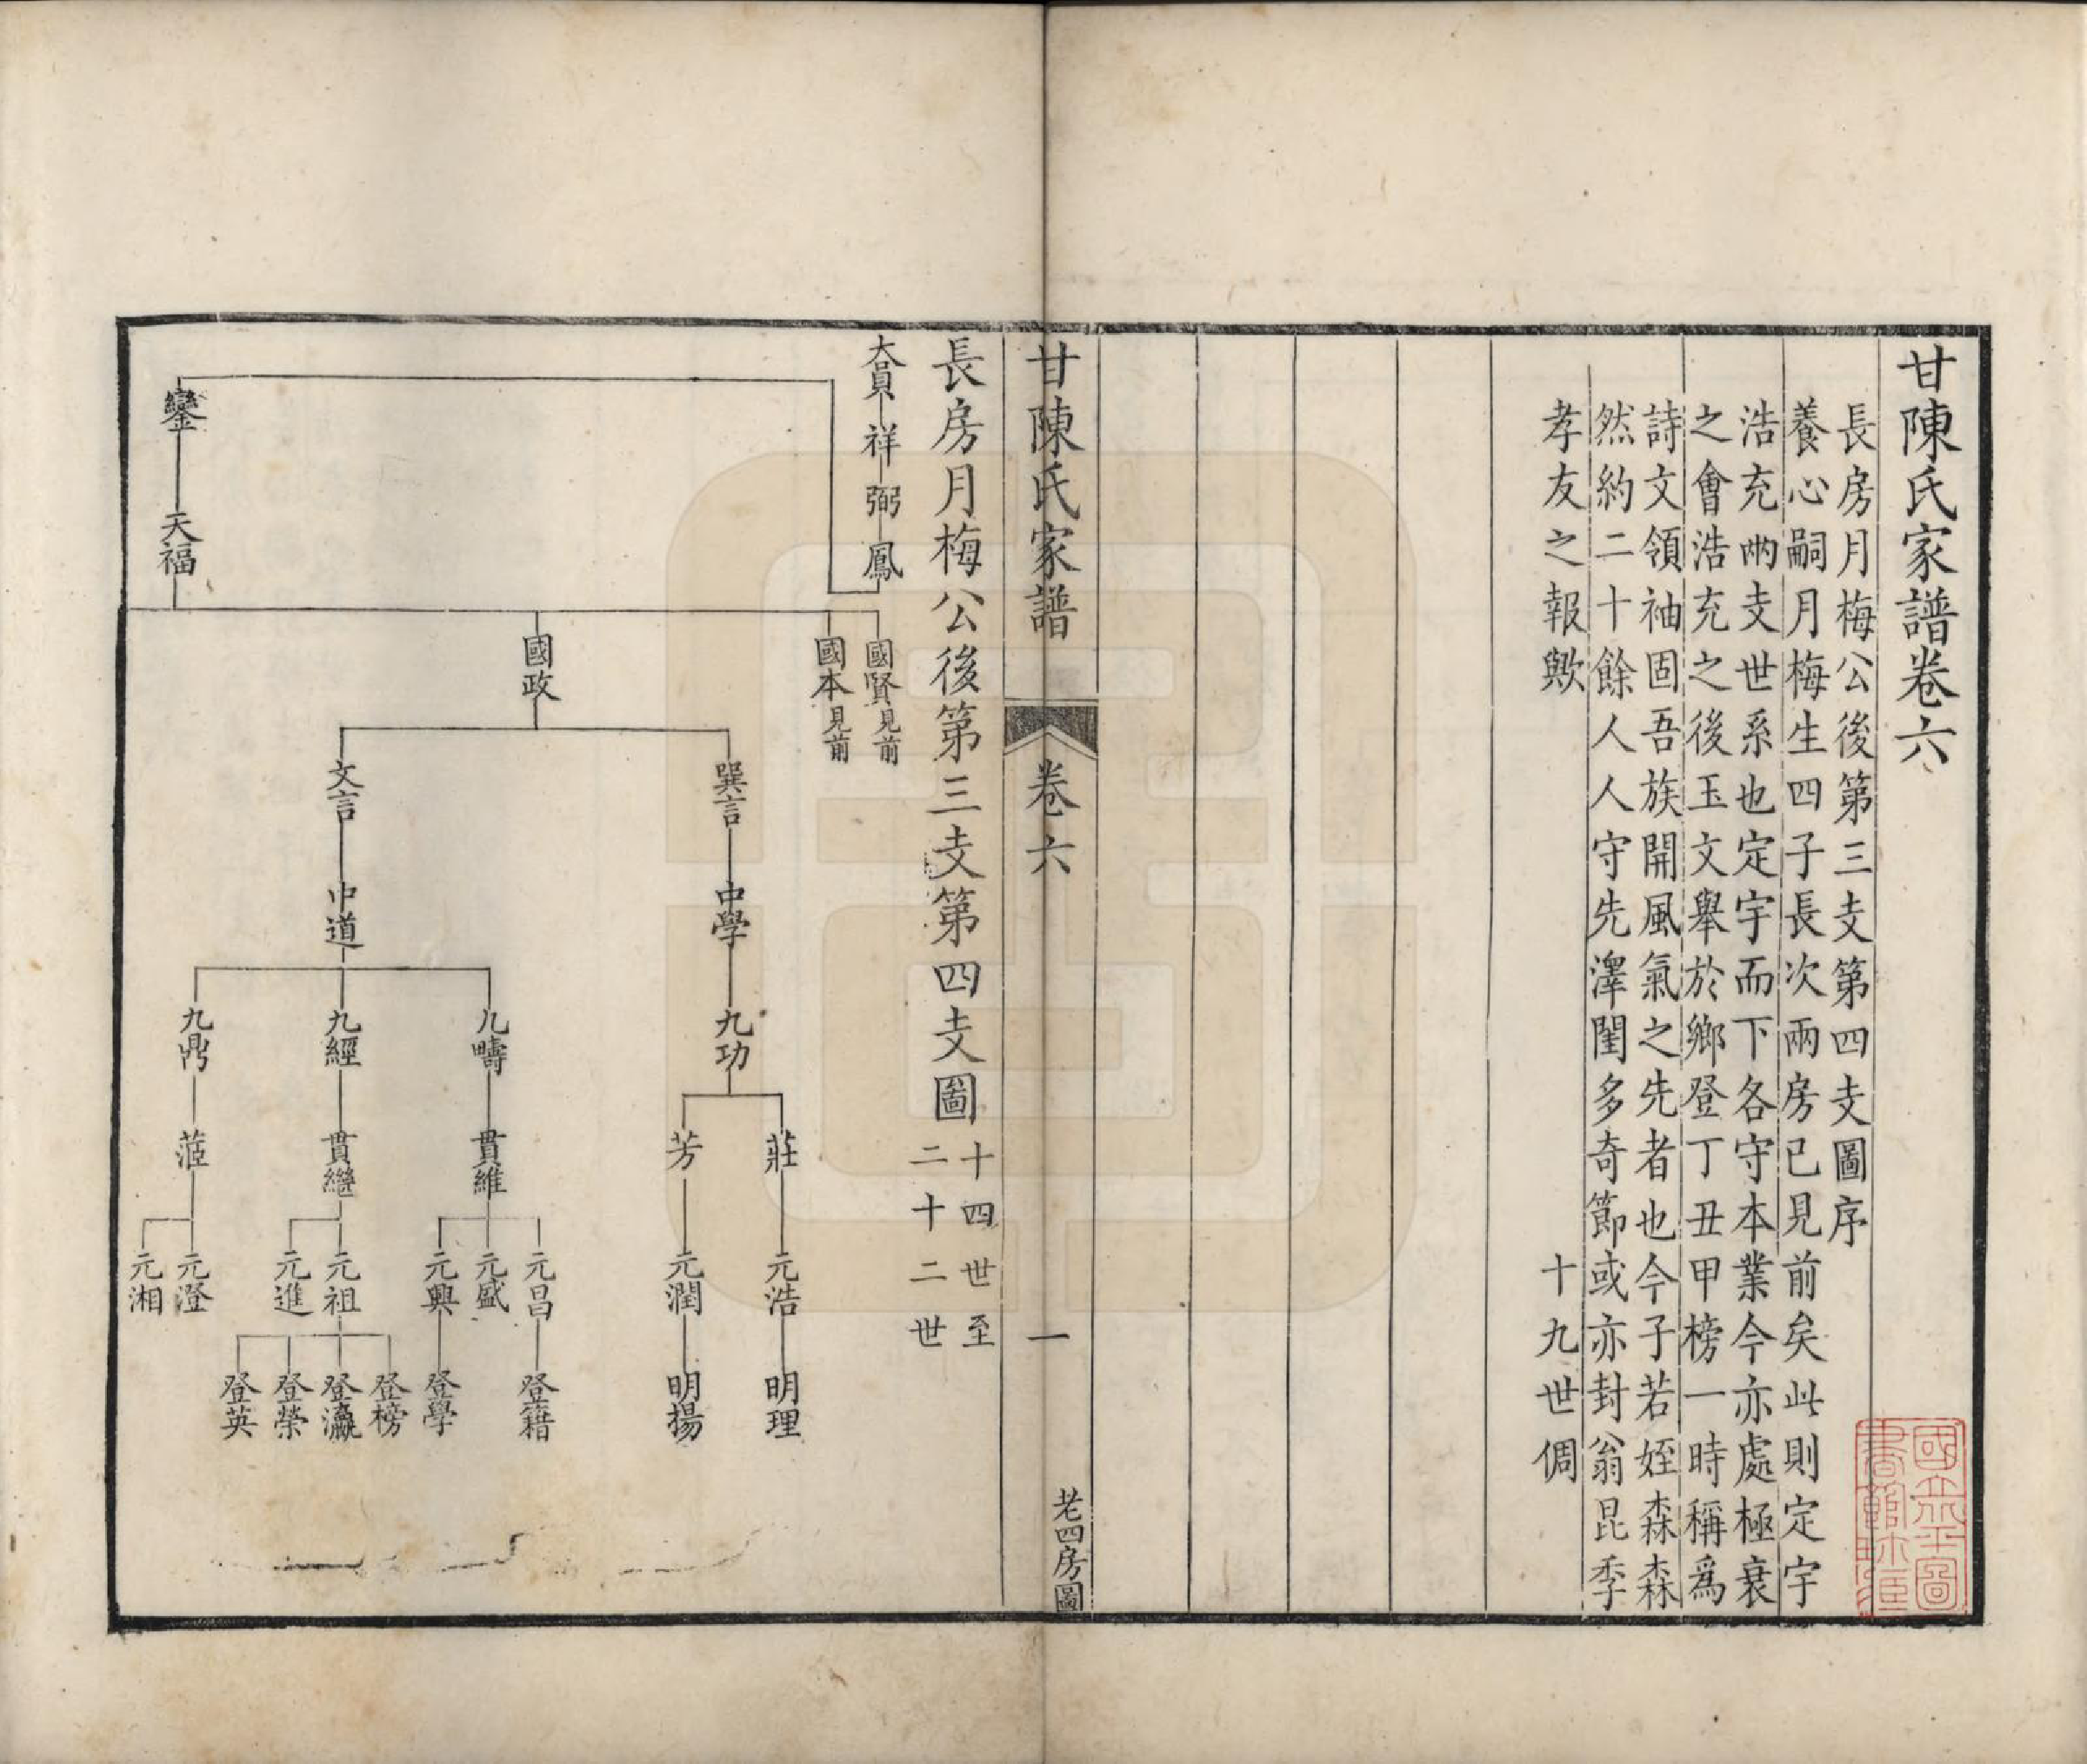 甘陳氏家譜卷六
長房月梅公後第三支第四支圖序
養心嗣月梅生四子長次兩房已見前矣此則定宇
浩充兩支世系也定宇而下各守本業今亦處極衰
之會浩充之後玉文舉於鄉登丁丑甲榜一時稱爲
詩文領袖固吾族開風氣之先者也今子若姪森森
然約二十餘人人守先澤閨多奇節或亦封翁昆季
孝友之報歟
十九世倜
甘陳氏家譜
卷六
一
老四房圖
長房月梅公後第三支第四支圖
十四世至
二十二世
大員
祥
弼
鳳
鑾
天福
國賢見前
國本見前
國政
巽言
文言
中學
中道
九功
九疇
九經
九鼎
莊
芳
貫維
貫繼
元浩
元潤
元昌
元盛
元興
元祖
元進
元澄
元湘
明理
明揚
登籍
登學
登榜
登瀛
登榮
登英